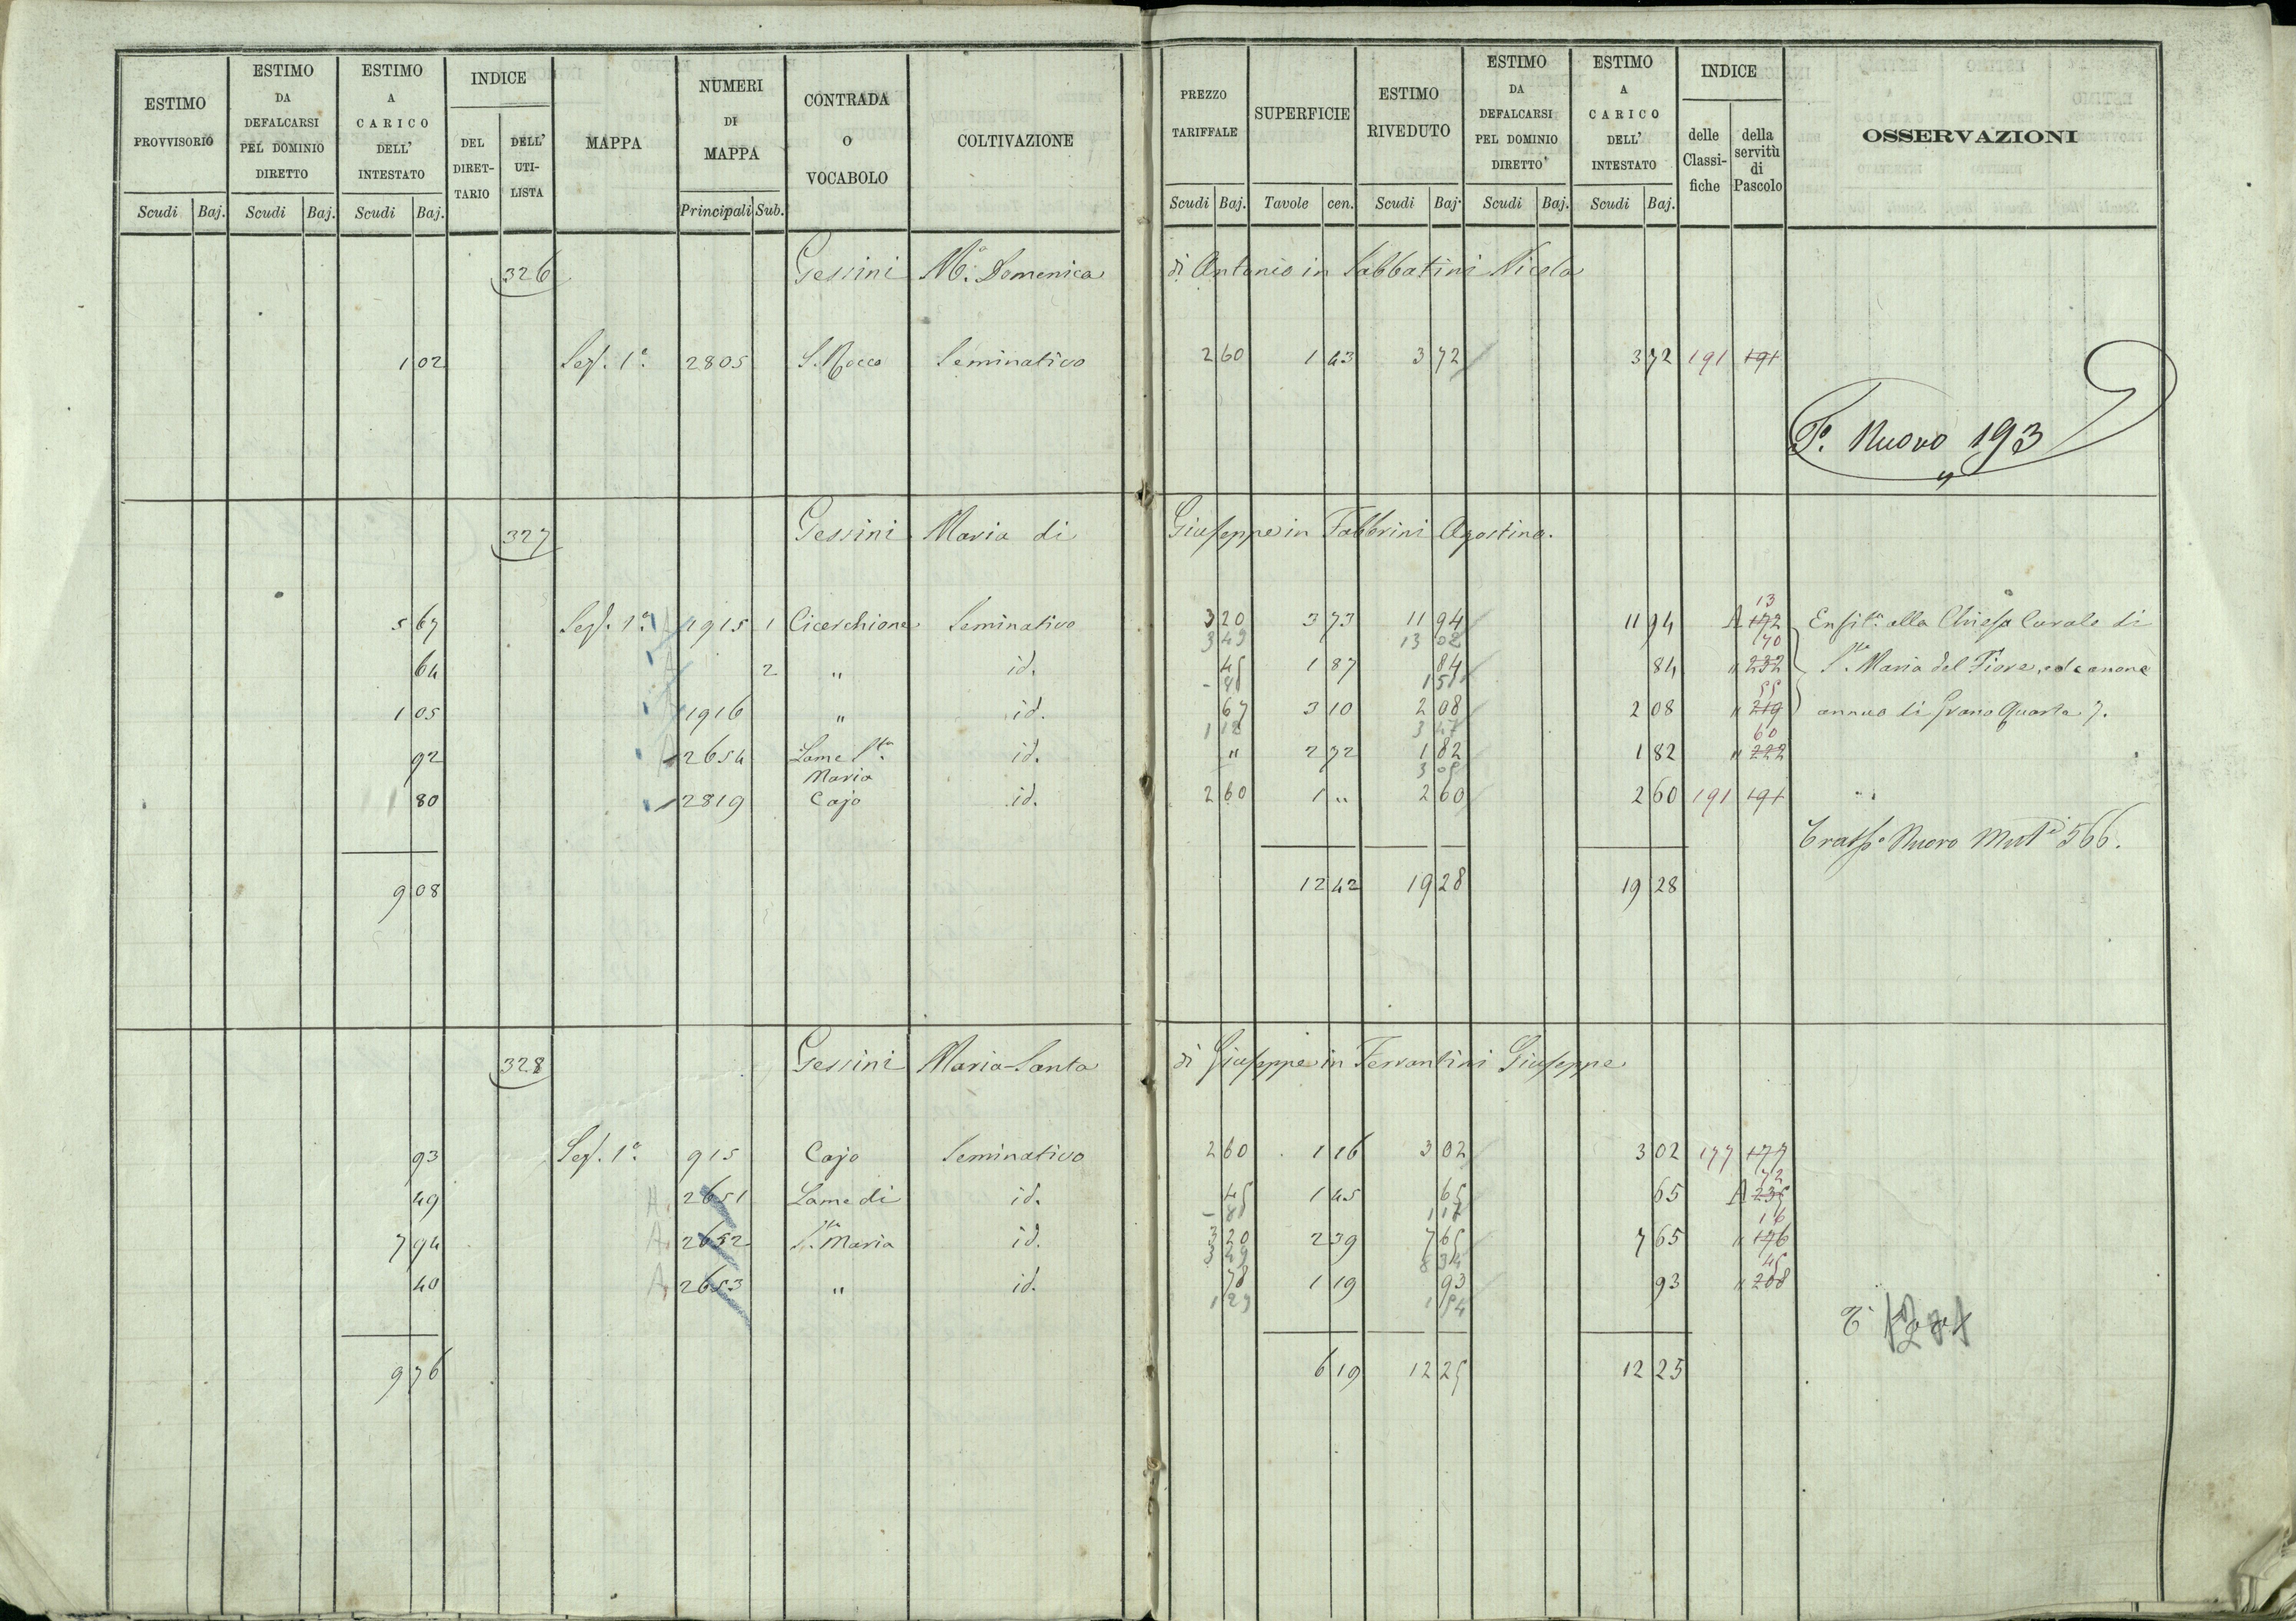 ESTIMO PROVVISORIO | ESTIMO DA DEFALCARSI PEL DOMINIO DIRETTO | ESTIMO A CARICO DELL' INTESTATO | INDICE DEL DIRETTARIO | DELL' UTILISTA | MAPPA | NUMERI DI MAPPA | CONTRADA O VOCABOLO | COLTIVAZIONE | PREZZO TARIFFALE | SUPERFICIE | ESTIMO RIVEDUTO | ESTIMO DA DEFALCARSI PEL DOMINIO DIRETTO | ESTIMO A CARICO DELL' INTESTATO | INDICE delle Classifiche | della servitù di Pascolo | OSSERVAZIONI
Scudi Baj. Scudi Baj. Scudi Baj. Principali Sub. Scudi Baj. Tavole cen. Scudi Baj. Scudi Baj. Scudi Baj.
326 Gessini Mª. Domenica di Antonio in Sabbatini Nicola
1 02 Sez. 1ª. 2805 S. Rocco Seminativo 2 60 1 43 3 72 3 72 191 191
Tº. Nuovo 193
327 Gessini Maria di Giuseppe in Fabbrini Agostino.
13
5 67 Sez. 1ª. 1915 1 Cicerchione Seminativo 3 20 3 73 11 94 11 94 A 172 Enfit. alla Chiesa Curale di
3 49 13 02 70
64 2 " id. 45 1 87 84 84 " 232 Sta. Maria del Fiore, ed canone
- 81 1 51 55
1 05 1916 " id. 67 3 10 2 08 2 08 " 219 annuo di grano Quarta 7.
1 12 3 47 60
92 2654 Lame Sta. Maria id. " 2 72 1 82 1 82 " 222
3 05
80 2819 Cajo id. 2 60 1 " 2 60 2 60 191 191
Nuovo 566.
9 08 12 42 19 28 19 28
328 Gessini Maria-Santa di Giuseppe in Ferrantini Giuseppe
93 Sez. 1ª. 915 Cajo Seminativo 2 60 1 16 3 02 3 02 177 177
72
49 A. 2651 Lame di id. 45 1 45 65 65 A 235
- 81 1 17 16
7 94 A. 2652 Sta. Maria id. 3 20 2 39 7 65 7 65 " 176
3 49 8 34 45
40 A. 2653 " id. 78 1 19 93 93 " 208
1 29 1 54
9 76 6 19 12 25 12 25